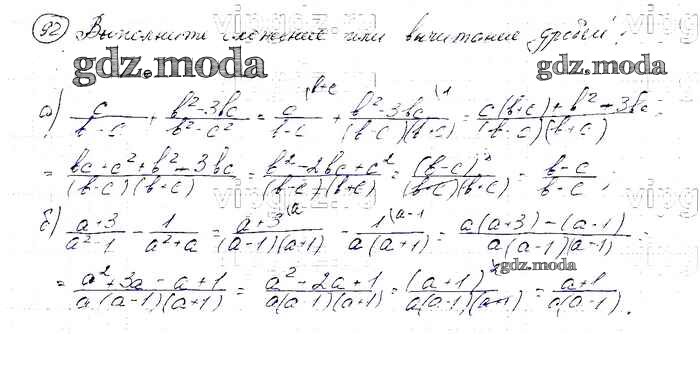 92) Выполните сложение или вычитание дробей:
gdz.moda gdz.moda
а) c/(b-c) + (b²-3bc)/(b²-c²) = c/(b-c) (b+c + (b²-3bc)/((b-c)(b+c)) (1 = (c(b+c)+b²-3bc)/((b-c)(b+c)) =
= (bc+c²+b²-3bc)/((b-c)(b+c)) = (b²-2bc+c²)/((b-c)(b+c)) = (b-c)²/((b-c)(b+c)) = (b-c)/(b-c);
б) (a+3)/(a²-1) - 1/(a²+a) = (a+3)/((a-1)(a+1)) (a - 1/(a(a+1)) (a-1 = (a(a+3)-(a-1))/(a(a-1)(a-1)) =
gdz.moda
= (a²+3a-a+1)/(a(a-1)(a+1)) = (a²-2a+1)/(a(a-1)(a+1)) = (a+1)²/(a(a-1)(a+1)) = (a+1)/(a(a-1)).